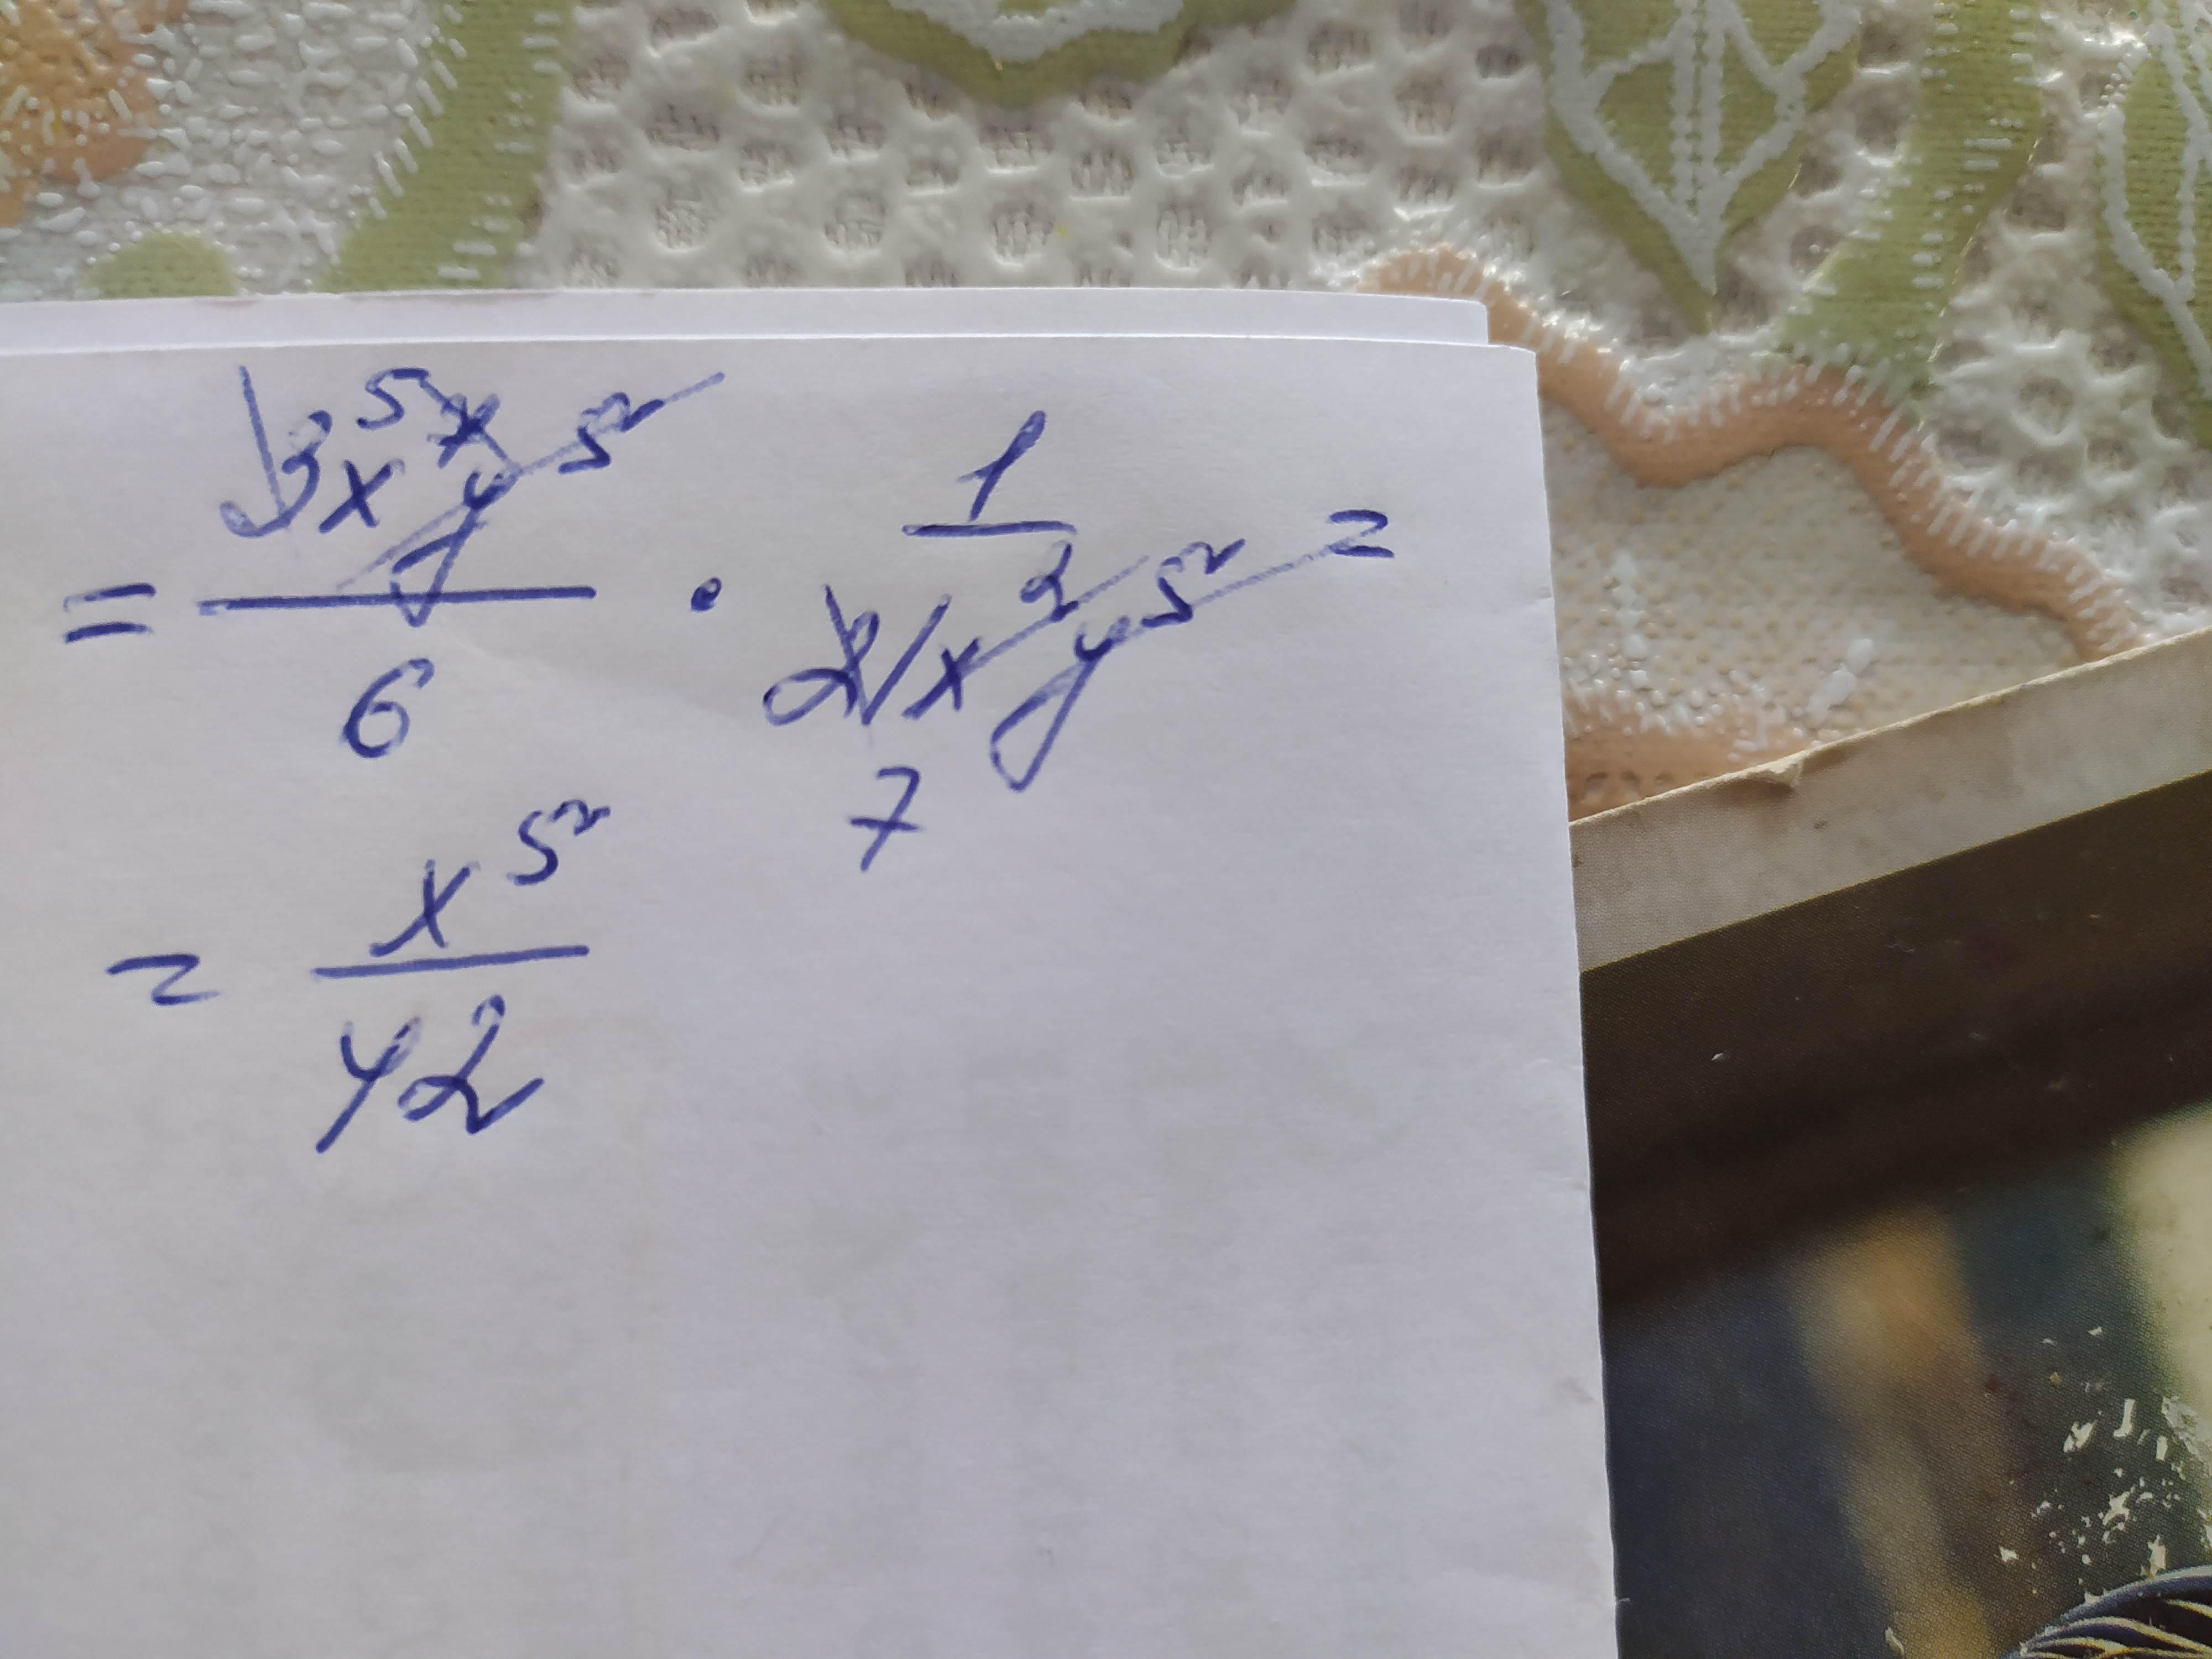 = 3x⁵⁷y⁵ / 6 · 1 / 21x²y⁵ =
7
= x⁵ / 42